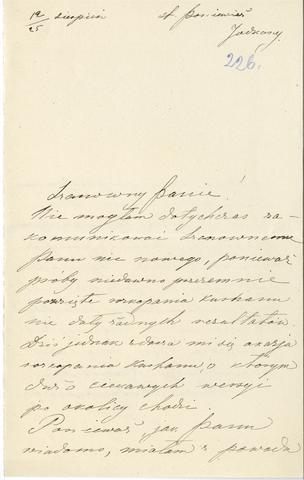 12/25 sierpnia st. Poniewież
Jodkany
226.
Szanowny Panie!
Nie mogłam dotychczas za-
komunikować Szanownemu
Panu nic nowego, ponieważ
próby niedawno przezemnie
powzięte rozkopania kurhanu
nie dały żadnych rezultatów.
Dziś jednak zdarza mi się okazja
rozkopania kurhanu, o którym
dużo ciekawych wersyj
po okolicy chodzi.
Ponieważ, jak Panu
wiadomo, miałam z powodu